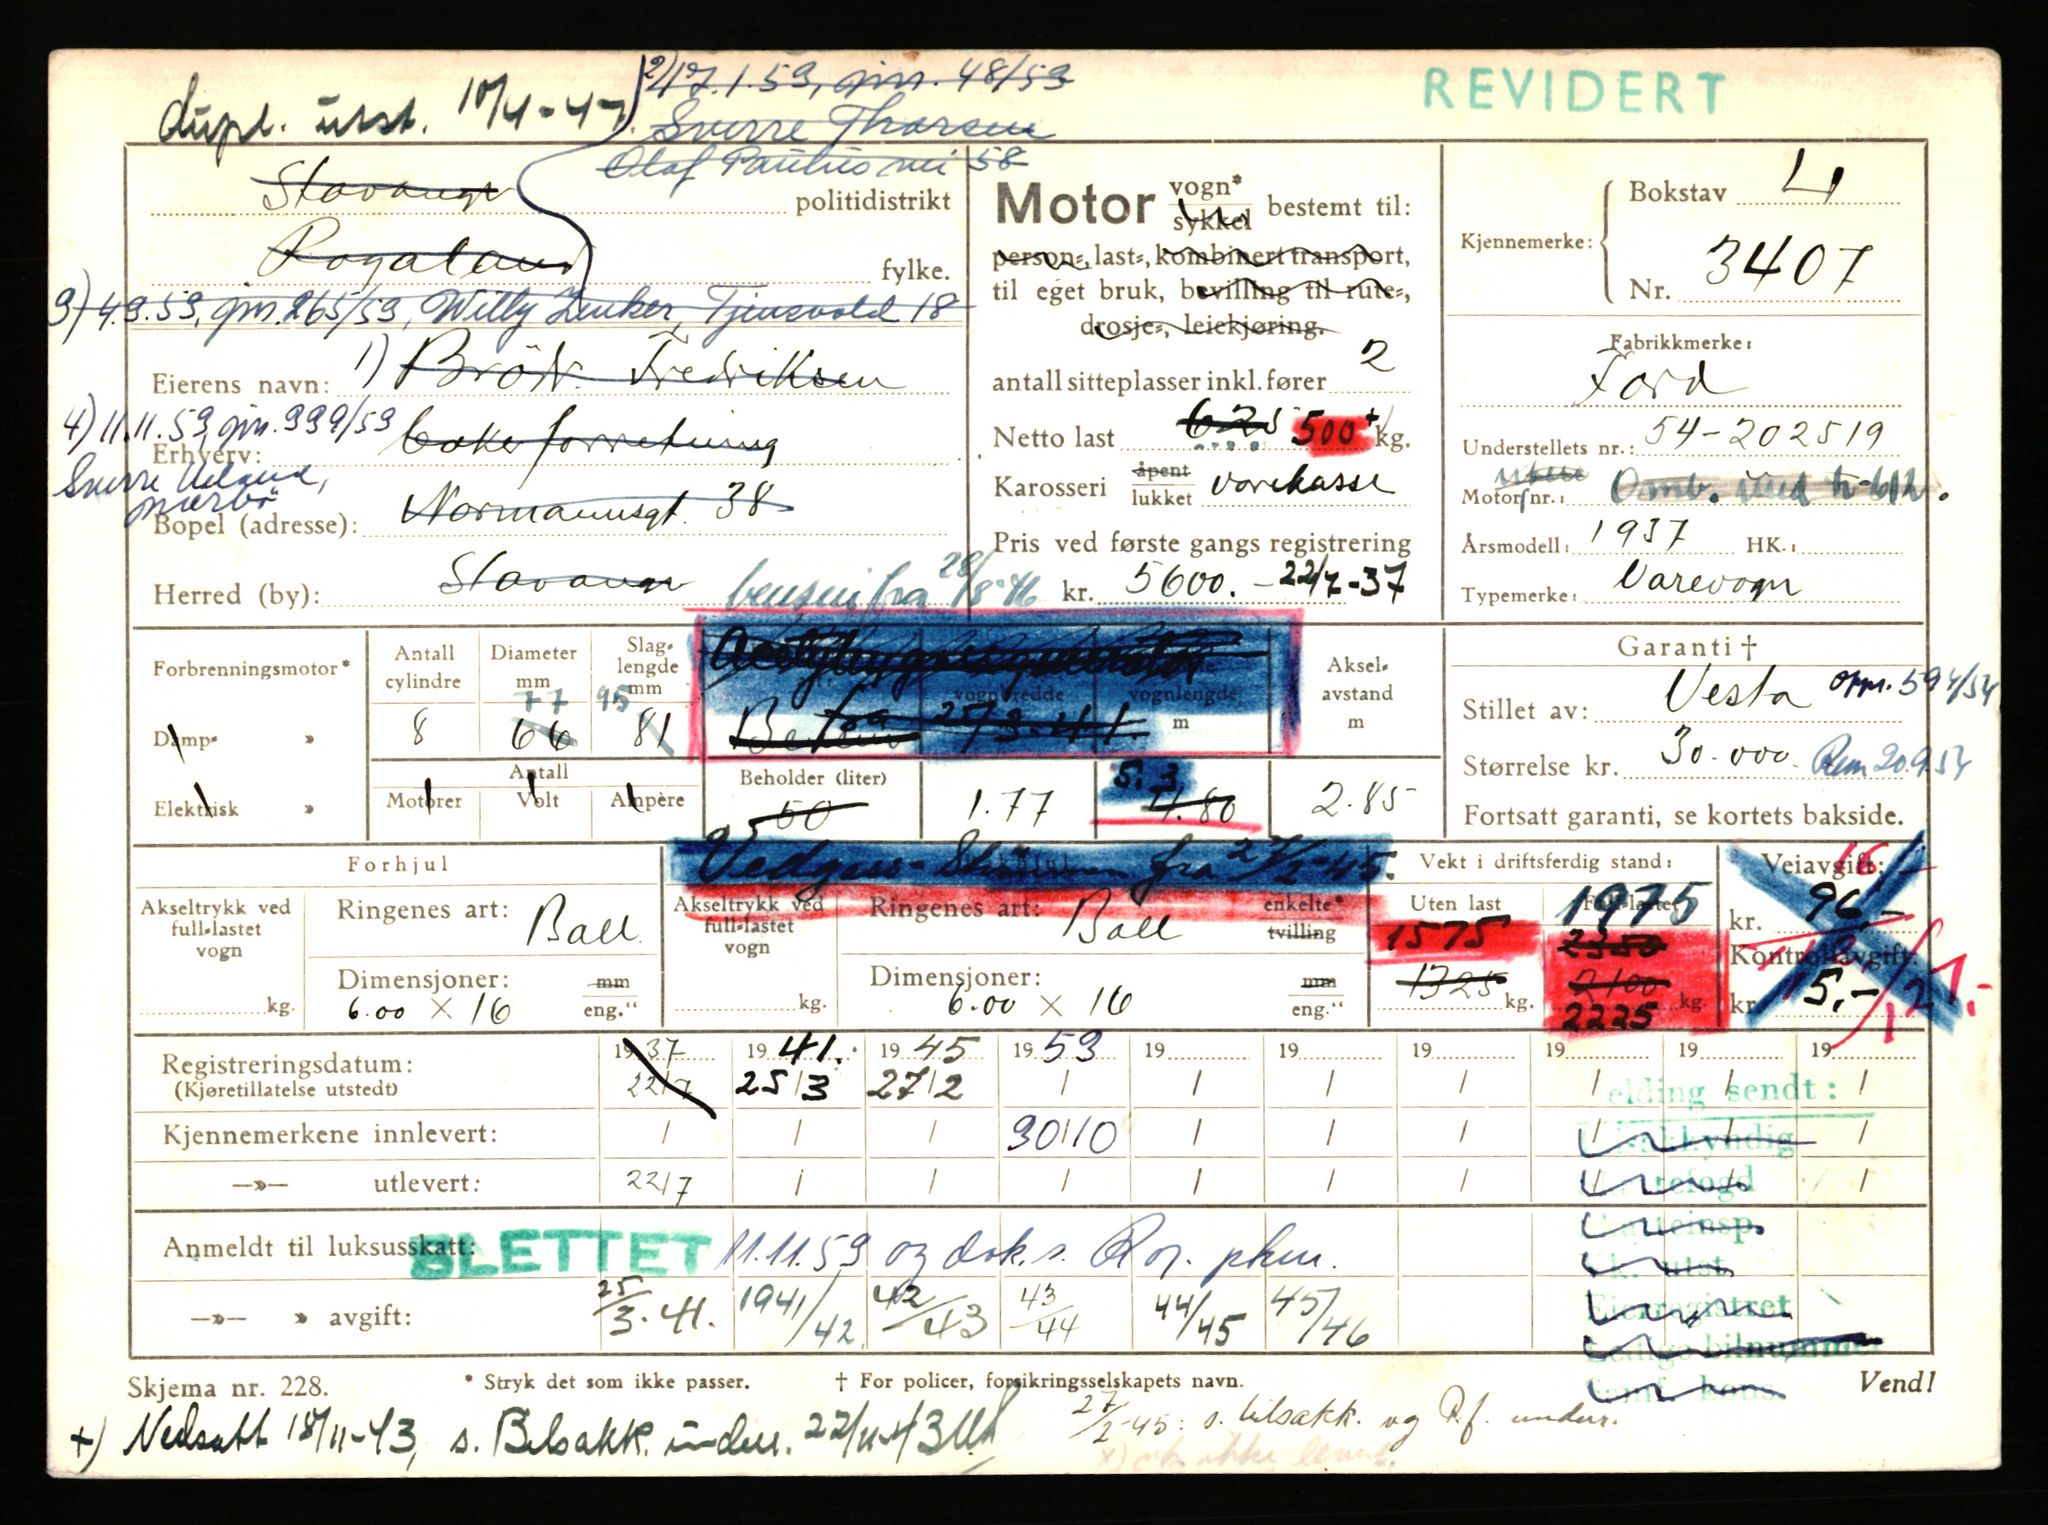 REVIDERT
dupl. utst. 10/4-47.
2) 17.1.59, gjm. 48/59
Sverre Thorsen
Olaf Paulus vei 58
Stavanger politidistrikt
Rogaland fylke.
3) 4.9.59, gjm. 265/59, Willy Zenker, Tjensvold 18
Eierens navn: 1) Brödr. Fredriksen
4) 11.11.59, gjm. 999/59
Erhverv: bakerforretning
Sverre Ueland,
nærbø
Bopel (adresse): Normannsgt. 38
Herred (by): Stavanger
bensin fra 28/8-46
Motor vogn* sykkel bestemt til:
person-, last-, kombinert transport,
til eget bruk, bevilling til rute-,
drosje-, leiekjøring.
antall sitteplasser inkl. fører 2
Netto last 625 500 + kg.
Karosseri åpent lukket varekasse
Pris ved første gangs registrering
kr. 5600. - 22/7-37
Kjennemerke: Bokstav L
Nr. 3407
Fabrikkmerke:
Ford
Understellets nr.: 54-202519
Motors nr.: Omb. med tr-612.
Årsmodell: 1937 HK.:
Typemerke: Varevogn
Forbrenningsmotor*
Damp- »
Elektrisk »
Antall cylindre
8
Diameter mm
77
66
Slaglengde mm
95
81
Antall
Motorer Volt Ampère
vognbredde
vognlengde
m
Bensin fra 25/3-41.
Akselavstand m
Beholder (liter)
50
1.77
5.3
4.80
2.85
Garanti †
Stillet av: Vesta oppr. 594/54
Størrelse kr. 30.000. Rem 20.9.54
Fortsatt garanti, se kortets bakside.
Vedgass- fra 27/2-45.
Forhjul
Akseltrykk ved full-lastet vogn
kg.
Ringenes art: Ball.
Dimensjoner: mm
6.00 × 16 eng."
Akseltrykk ved full-lastet vogn
kg.
Ringenes art: Ball enkelte* tvilling
Dimensjoner: mm
6.00 × 16 eng."
Vekt i driftsferdig stand:
Uten last
1575
1325 kg.
Full-lastet
1975
2350
2100 kg.
2225
Veiavgift:
kr. 96,-
Kontrollavgift:
kr. 5,-
Registreringsdatum: 1937 1941. 1945 1959 19 19 19 19 19 19
(Kjøretillatelse utstedt) 22/7 25/3 27/2
Kjennemerkene innlevert: 30/10
—»— utlevert: 22/7
Anmeldt til luksusskatt: BLETTET 11.11.59 og dok. s. Rog. pkm.
—»— » avgift: 25/3-41. 1941/42 42/43 43/44 44/45 45/46
elding sendt:
Eierregistret
Ledige bilnummer
Skjema nr. 228.
* Stryk det som ikke passer.
† For policer, forsikringsselskapets navn.
Vend!
+) Nedsatt 18/11-43, s. Bilsakk. under. 22/11-43
27/2-45: s. bilsakk. og P.f. under.